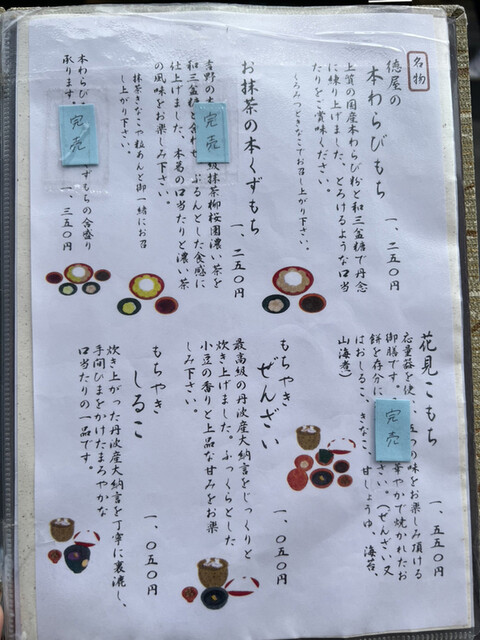 名物
徳屋の
本わらびもち 一、二五〇円
上質の国産本わらび粉と和三盆糖で丹念
に練り上げました。とろけるような口当
たりをご賞味ください。
くろみつときなこでお召し上がり下さい。
お抹茶の本くずもち 一、二五〇円
吉野の 級抹茶柳桜園濃い茶を
和三盆糖と合わせ ぷるんとした食感に
仕上げました。本葛の口当たりと濃い茶
の風味をお楽しみ下さい。
抹茶きなこや粒あんと御一緒にお召
し上がり下さい。
完売
本わらび ずもちの合盛り
承ります。 一、三五〇円
完売
花見こもち 一、五五〇円
応量器を使 五つの味をお楽しみ頂ける
御膳です。 華やかで焼かれたお
餅を存分に さい。(ぜんざい又
はおしるこ、きな 甘しょうゆ、海苔、
山海煮)
完売
もちやき
ぜんざい 一、〇五〇円
最高級の丹波産大納言をじっくりと
炊き上げました。ふっくらとした
小豆の香りと上品な甘みをお楽
しみ下さい。
もちやき
しるこ 一、〇五〇円
炊き上がった丹波産大納言を丁寧に裏漉し、
手間ひまをかけたまろやかな
口当たりの一品です。